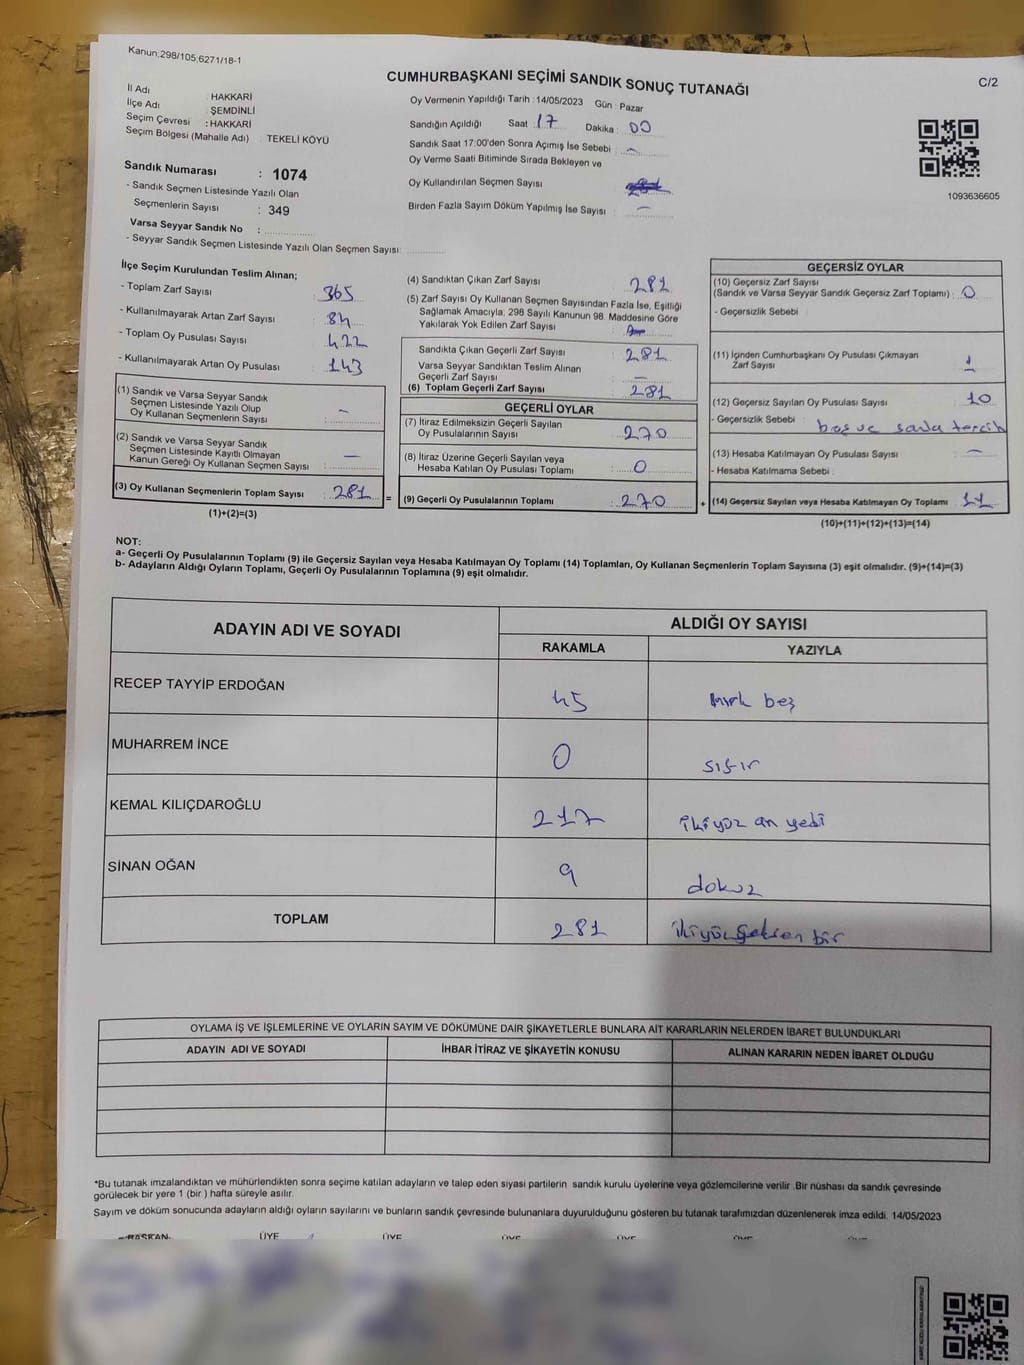 Kanun;298/105,6271/18-1
CUMHURBAŞKANI SEÇİMİ SANDIK SONUÇ TUTANAĞI
C/2
İl Adı : HAKKARİ
İlçe Adı : ŞEMDİNLİ
Seçim Çevresi : HAKKARİ
Seçim Bölgesi (Mahalle Adı) : TEKELİ KÖYÜ
Oy Vermenin Yapıldığı Tarih : 14/05/2023 Gün : Pazar
Sandığın Açıldığı Saat 17 Dakika : 00
Sandık Saat 17:00'den Sonra Açımış İse Sebebi : -
Oy Verme Saati Bitiminde Sırada Bekleyen ve
Oy Kullandırılan Seçmen Sayısı
Birden Fazla Sayım Döküm Yapılmış İse Sayısı : -
1093636605
Sandık Numarası : 1074
- Sandık Seçmen Listesinde Yazılı Olan
Seçmenlerin Sayısı : 349
Varsa Seyyar Sandık No :
- Seyyar Sandık Seçmen Listesinde Yazılı Olan Seçmen Sayısı:
İlçe Seçim Kurulundan Teslim Alınan;
- Toplam Zarf Sayısı : 365
- Kullanılmayarak Artan Zarf Sayısı : 84
- Toplam Oy Pusulası Sayısı : 422
- Kullanılmayarak Artan Oy Pusulası : 143
(1) Sandık ve Varsa Seyyar Sandık
Seçmen Listesinde Yazılı Olup
Oy Kullanan Seçmenlerin Sayısı : -
(2) Sandık ve Varsa Seyyar Sandık
Seçmen Listesinde Kayıtlı Olmayan
Kanun Gereği Oy Kullanan Seçmen Sayısı : -
(3) Oy Kullanan Seçmenlerin Toplam Sayısı : 281
(1)+(2)=(3)
=
(4) Sandıktan Çıkan Zarf Sayısı : 281
(5) Zarf Sayısı Oy Kullanan Seçmen Sayısından Fazla İse, Eşitliği
Sağlamak Amacıyla, 298 Sayılı Kanunun 98. Maddesine Göre
Yakılarak Yok Edilen Zarf Sayısı :
Sandıkta Çıkan Geçerli Zarf Sayısı : 281
Varsa Seyyar Sandıktan Teslim Alınan
Geçerli Zarf Sayısı : -
(6) Toplam Geçerli Zarf Sayısı : 281
GEÇERLİ OYLAR
(7) İtiraz Edilmeksizin Geçerli Sayılan
Oy Pusulalarının Sayısı : 270
(8) İtiraz Üzerine Geçerli Sayılan veya
Hesaba Katılan Oy Pusulası Toplamı : 0
(9) Geçerli Oy Pusulalarının Toplamı : 270
+
GEÇERSİZ OYLAR
(10) Geçersiz Zarf Sayısı
(Sandık ve Varsa Seyyar Sandık Geçersiz Zarf Toplamı) : 0
- Geçersizlik Sebebi :
(11) İçinden Cumhurbaşkanı Oy Pusulası Çıkmayan
Zarf Sayısı : 1
(12) Geçersiz Sayılan Oy Pusulası Sayısı : 10
- Geçersizlik Sebebi : boş ve
(13) Hesaba Katılmayan Oy Pusulası Sayısı : -
- Hesaba Katılmama Sebebi :
(14) Geçersiz Sayılan veya Hesaba Katılmayan Oy Toplamı : 11
(10)+(11)+(12)+(13)=(14)
NOT:
a- Geçerli Oy Pusulalarının Toplamı (9) ile Geçersiz Sayılan veya Hesaba Katılmayan Oy Toplamı (14) Toplamları, Oy Kullanan Seçmenlerin Toplam Sayısına (3) eşit olmalıdır. (9)+(14)=(3)
b- Adayların Aldığı Oyların Toplamı, Geçerli Oy Pusulalarının Toplamına (9) eşit olmalıdır.
ADAYIN ADI VE SOYADI
ALDIĞI OY SAYISI
RAKAMLA YAZIYLA
RECEP TAYYİP ERDOĞAN 45 kırk beş
MUHARREM İNCE 0 sıfır
KEMAL KILIÇDAROĞLU 217 ikiyüz on yedi
SİNAN OĞAN 9 dokuz
TOPLAM 281 ikiyüzseksen bir
OYLAMA İŞ VE İŞLEMLERİNE VE OYLARIN SAYIM VE DÖKÜMÜNE DAİR ŞİKAYETLERLE BUNLARA AİT KARARLARIN NELERDEN İBARET BULUNDUKLARI
ADAYIN ADI VE SOYADI İHBAR İTİRAZ VE ŞİKAYETİN KONUSU ALINAN KARARIN NEDEN İBARET OLDUĞU
*Bu tutanak imzalandıktan ve mühürlendikten sonra seçime katılan adayların ve talep eden siyasi partilerin sandık kurulu üyelerine veya gözlemcilerine verilir .Bir nüshası da sandık çevresinde
görülecek bir yere 1 (bir ) hafta süreyle asılır.
Sayım ve döküm sonucunda adayların aldığı oyların sayılarını ve bunların sandık çevresinde bulunanlara duyurulduğunu gösteren bu tutanak tarafımızdan düzenlenerek imza edildi. 14/05/2023
BAŞKAN ÜYE ÜYE ÜYE ÜYE ÜYE ÜYE